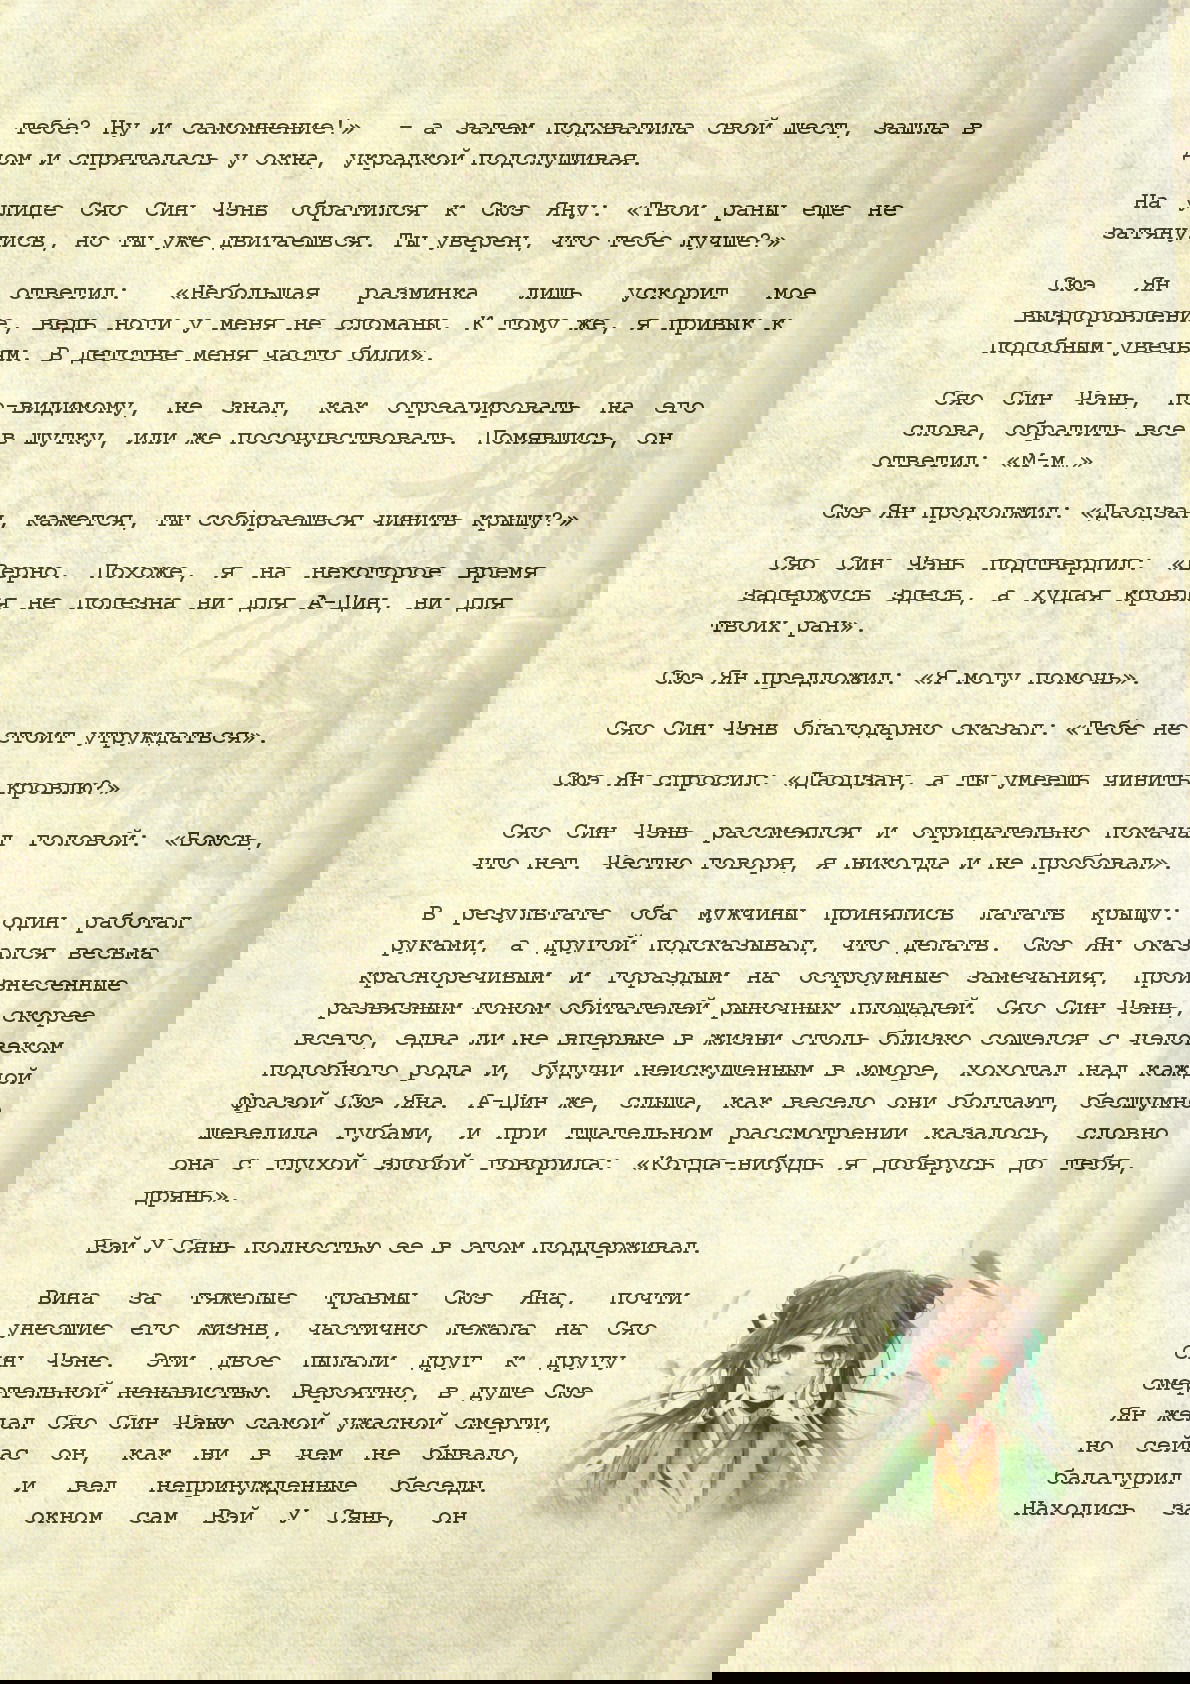 тебе? Ну и самомнение!» – а затем подхватила свой шест, зашла в
дом и спряталась у окна, украдкой подслушивая.
На улице Сяо Син Чэнь обратился к Сюэ Яну: «Твои раны еще не
затянулись, но ты уже двигаешься. Ты уверен, что тебе лучше?»
Сюэ Ян ответил: «Небольшая разминка лишь ускорит мое
выздоровление, ведь ноги у меня не сломаны. К тому же, я привык к
подобным увечьям. В детстве меня часто били».
Сяо Син Чэнь, по-видимому, не знал, как отреагировать на его
слова, обратить все в шутку, или же посочувствовать. Помявшись, он
ответил: «М-м…»
Сюэ Ян продолжил: «Даоцзан, кажется, ты собираешься чинить крышу?»
Сяо Син Чэнь подтвердил: «Верно. Похоже, я на некоторое время
задержусь здесь, а худая кровля не полезна ни для А-Цин, ни для
твоих ран».
Сюэ Ян предложил: «Я могу помочь».
Сяо Син Чэнь благодарно сказал: «Тебе не стоит утруждаться».
Сюэ Ян спросил: «Даоцзан, а ты умеешь чинить кровлю?»
Сяо Син Чэнь рассмеялся и отрицательно покачал головой: «Боюсь,
что нет. Честно говоря, я никогда и не пробовал».
В результате оба мужчины принялись латать крышу: один работал
руками, а другой подсказывал, что делать. Сюэ Ян оказался весьма
красноречивым и гораздым на остроумные замечания, произнесенные
развязным тоном обитателей рыночных площадей. Сяо Син Чэнь, скорее
всего, едва ли не впервые в жизни столь близко сошелся с человеком
подобного рода и, будучи неискушенным в юморе, хохотал над каждой
фразой Сюэ Яна. А-Цин же, слыша, как весело они болтают, бесшумно
шевелила губами, и при тщательном рассмотрении казалось, словно
она с глухой злобой говорила: «Когда-нибудь я доберусь до тебя,
дрянь».
Вэй У Сянь полностью ее в этом поддерживал.
Вина за тяжелые травмы Сюэ Яна, почти
унесшие его жизнь, частично лежала на Сяо
Син Чэне. Эти двое пылали друг к другу
смертельной ненавистью. Вероятно, в душе Сюэ
Ян желал Сяо Син Чэню самой ужасной смерти,
но сейчас он, как ни в чем не бывало,
балагурил и вел непринужденные беседы.
Находись за окном сам Вэй У Сянь, он